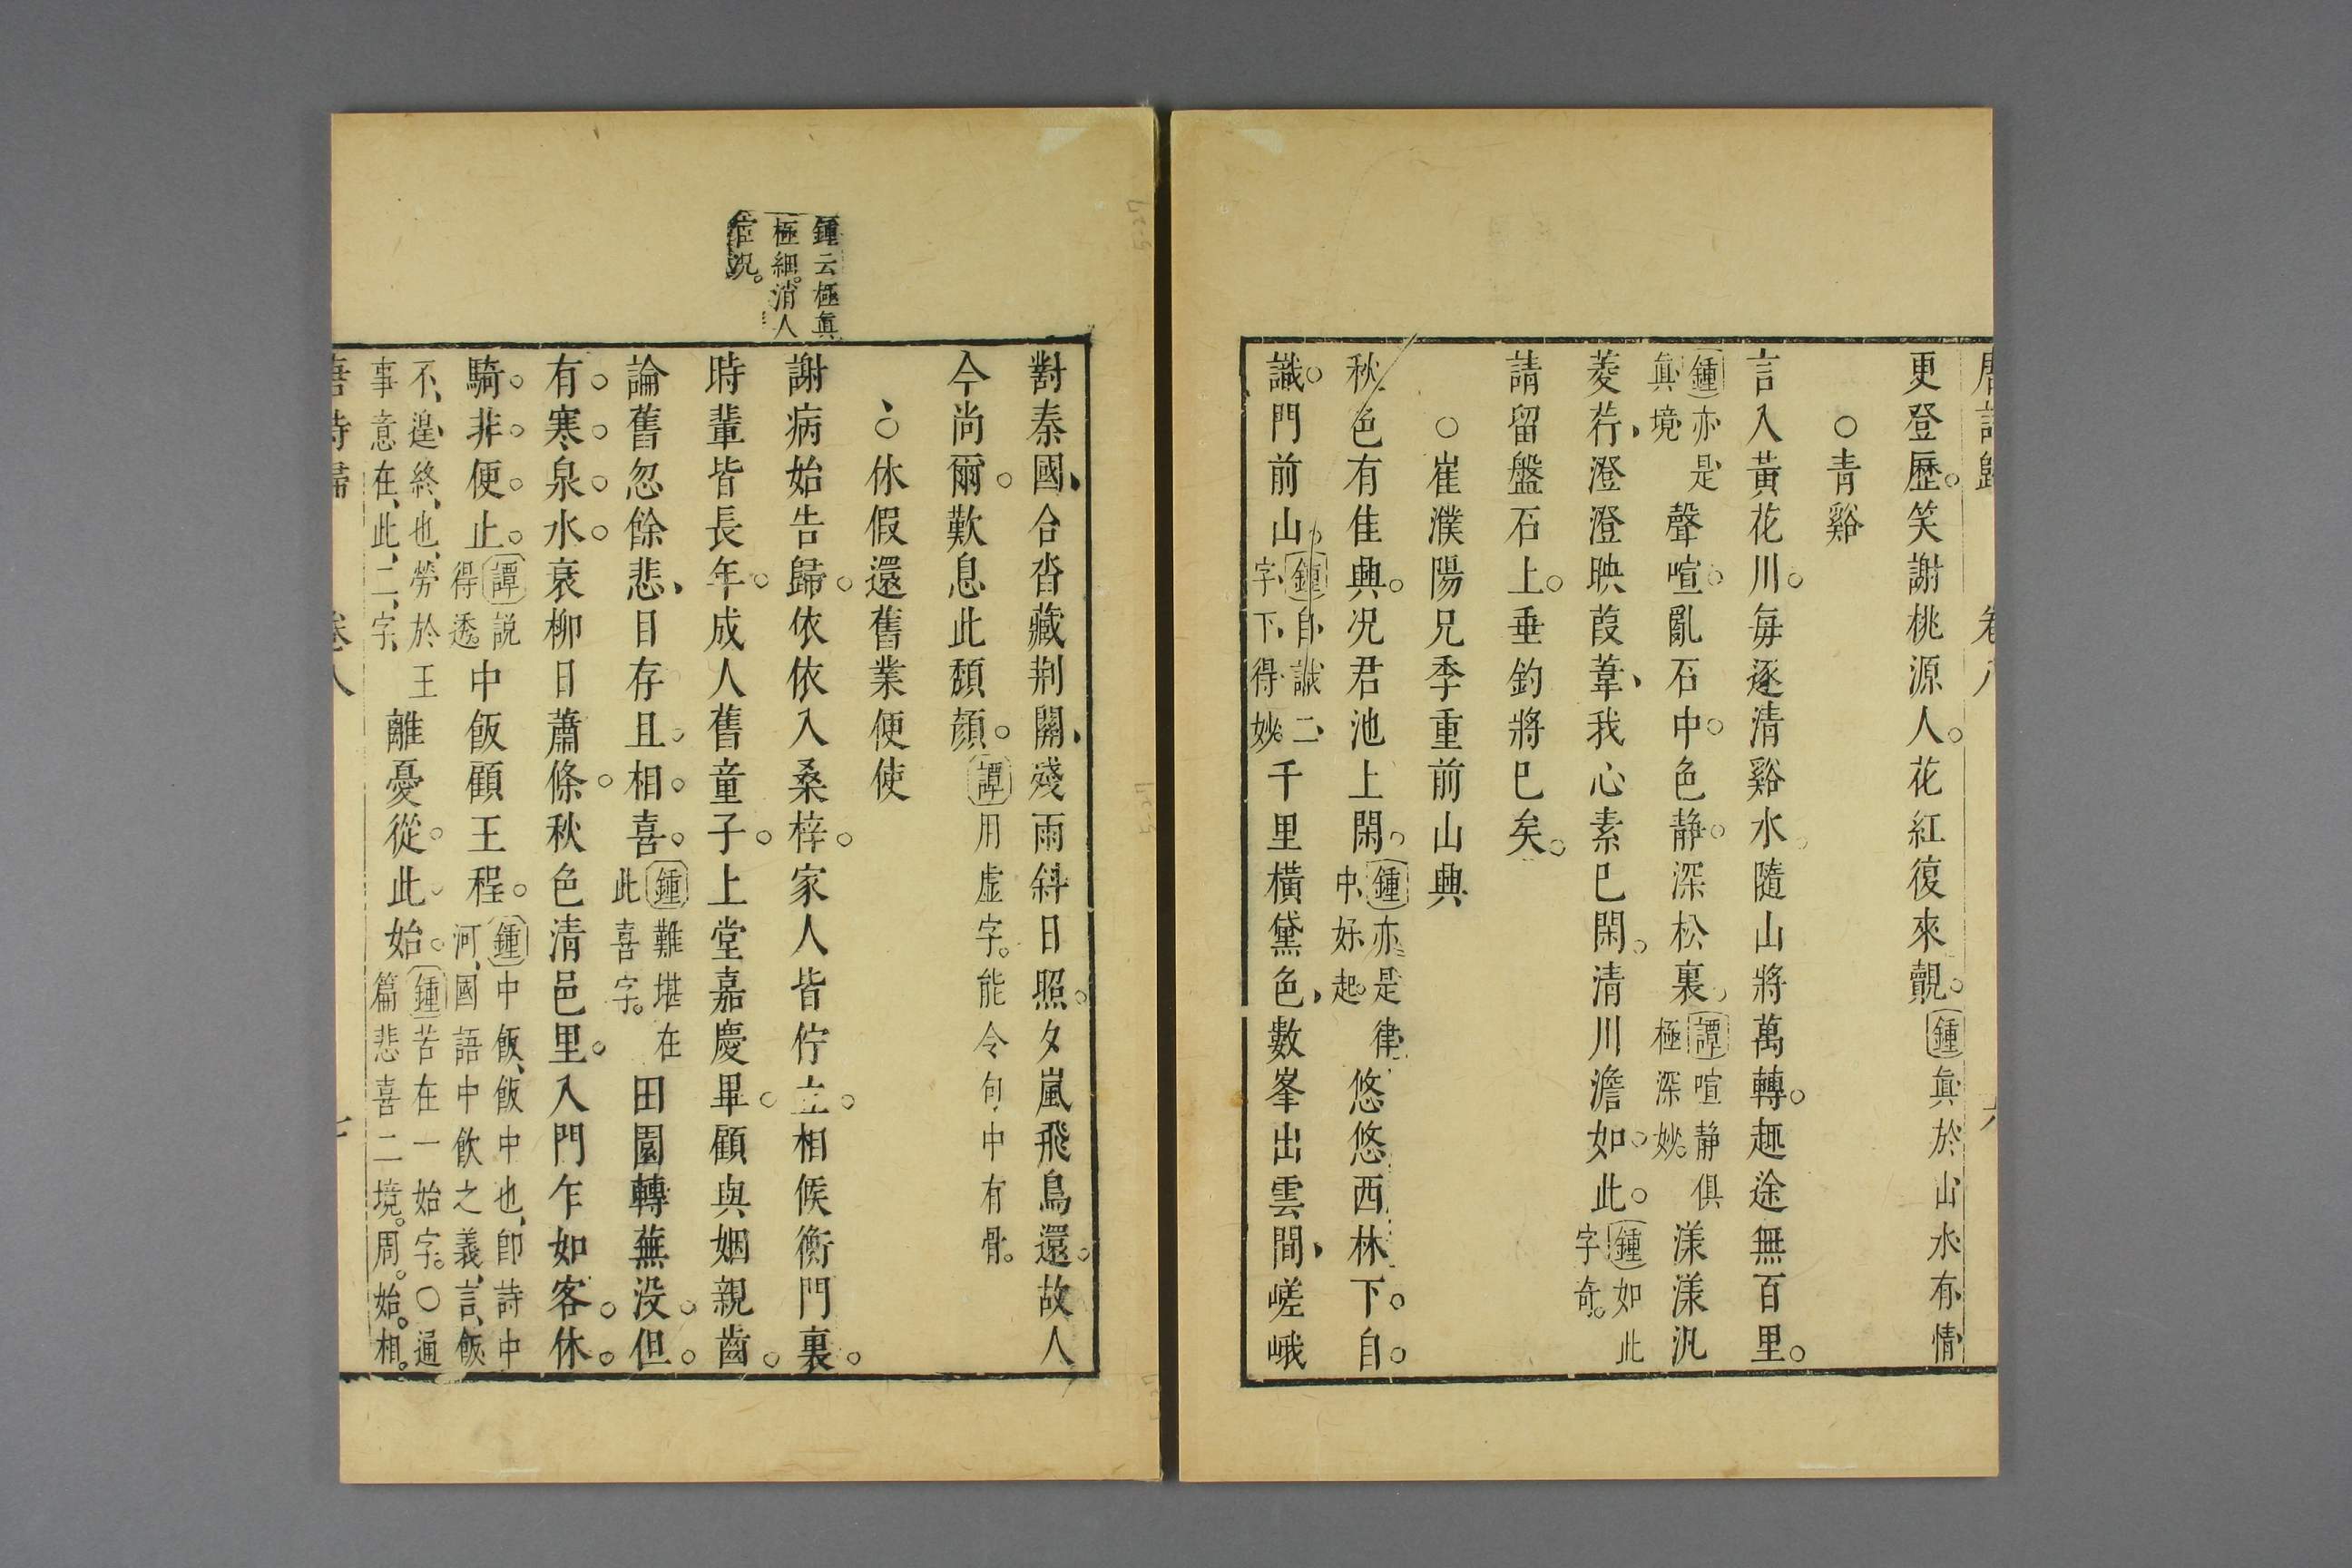 唐詩歸 卷八
更登歷笑謝桃源人花紅復來覿鍾眞於山水有情
○青谿
言入黃花川每逐清谿水隨山將萬轉趣途無百里
鍾亦是眞境聲喧亂石中色靜深松裏譚喧靜俱極深妙漾漾汎
菱荇澄澄映葭葦我心素已閑清川澹如此鍾如此字奇
請留盤石上垂釣將已矣
○崔濮陽兄季重前山興
秋色有佳興况君池上閑鍾亦是律中好起悠悠西林下自
識門前山鍾自識二字下得妙千里橫黛色數峯出雲間嵯峨
對秦國合沓藏荆關殘雨斜日照夕嵐飛鳥還故人
今尚爾歎息此頹顔譚用虛字能令句中有骨
○休假還舊業便使
鍾云極眞
極細消人
宦况
謝病始告歸依依入桑梓家人皆佇立相候衡門裏
時輩皆長年成人舊童子上堂嘉慶畢顧與姻親齒
論舊忽餘悲目存且相喜鍾難堪在此喜字田園轉蕪没但
有寒泉水衰柳日蕭條秋色清邑里入門乍如客休
騎非便止譚説得透中飯顧王程鍾中飯飯中也卽詩中河國語中飲之義言飯
不遑終也勞於王事意在此二字離憂從此始鍾苦在一始字○通篇悲喜二境周始相
唐詩歸 卷八